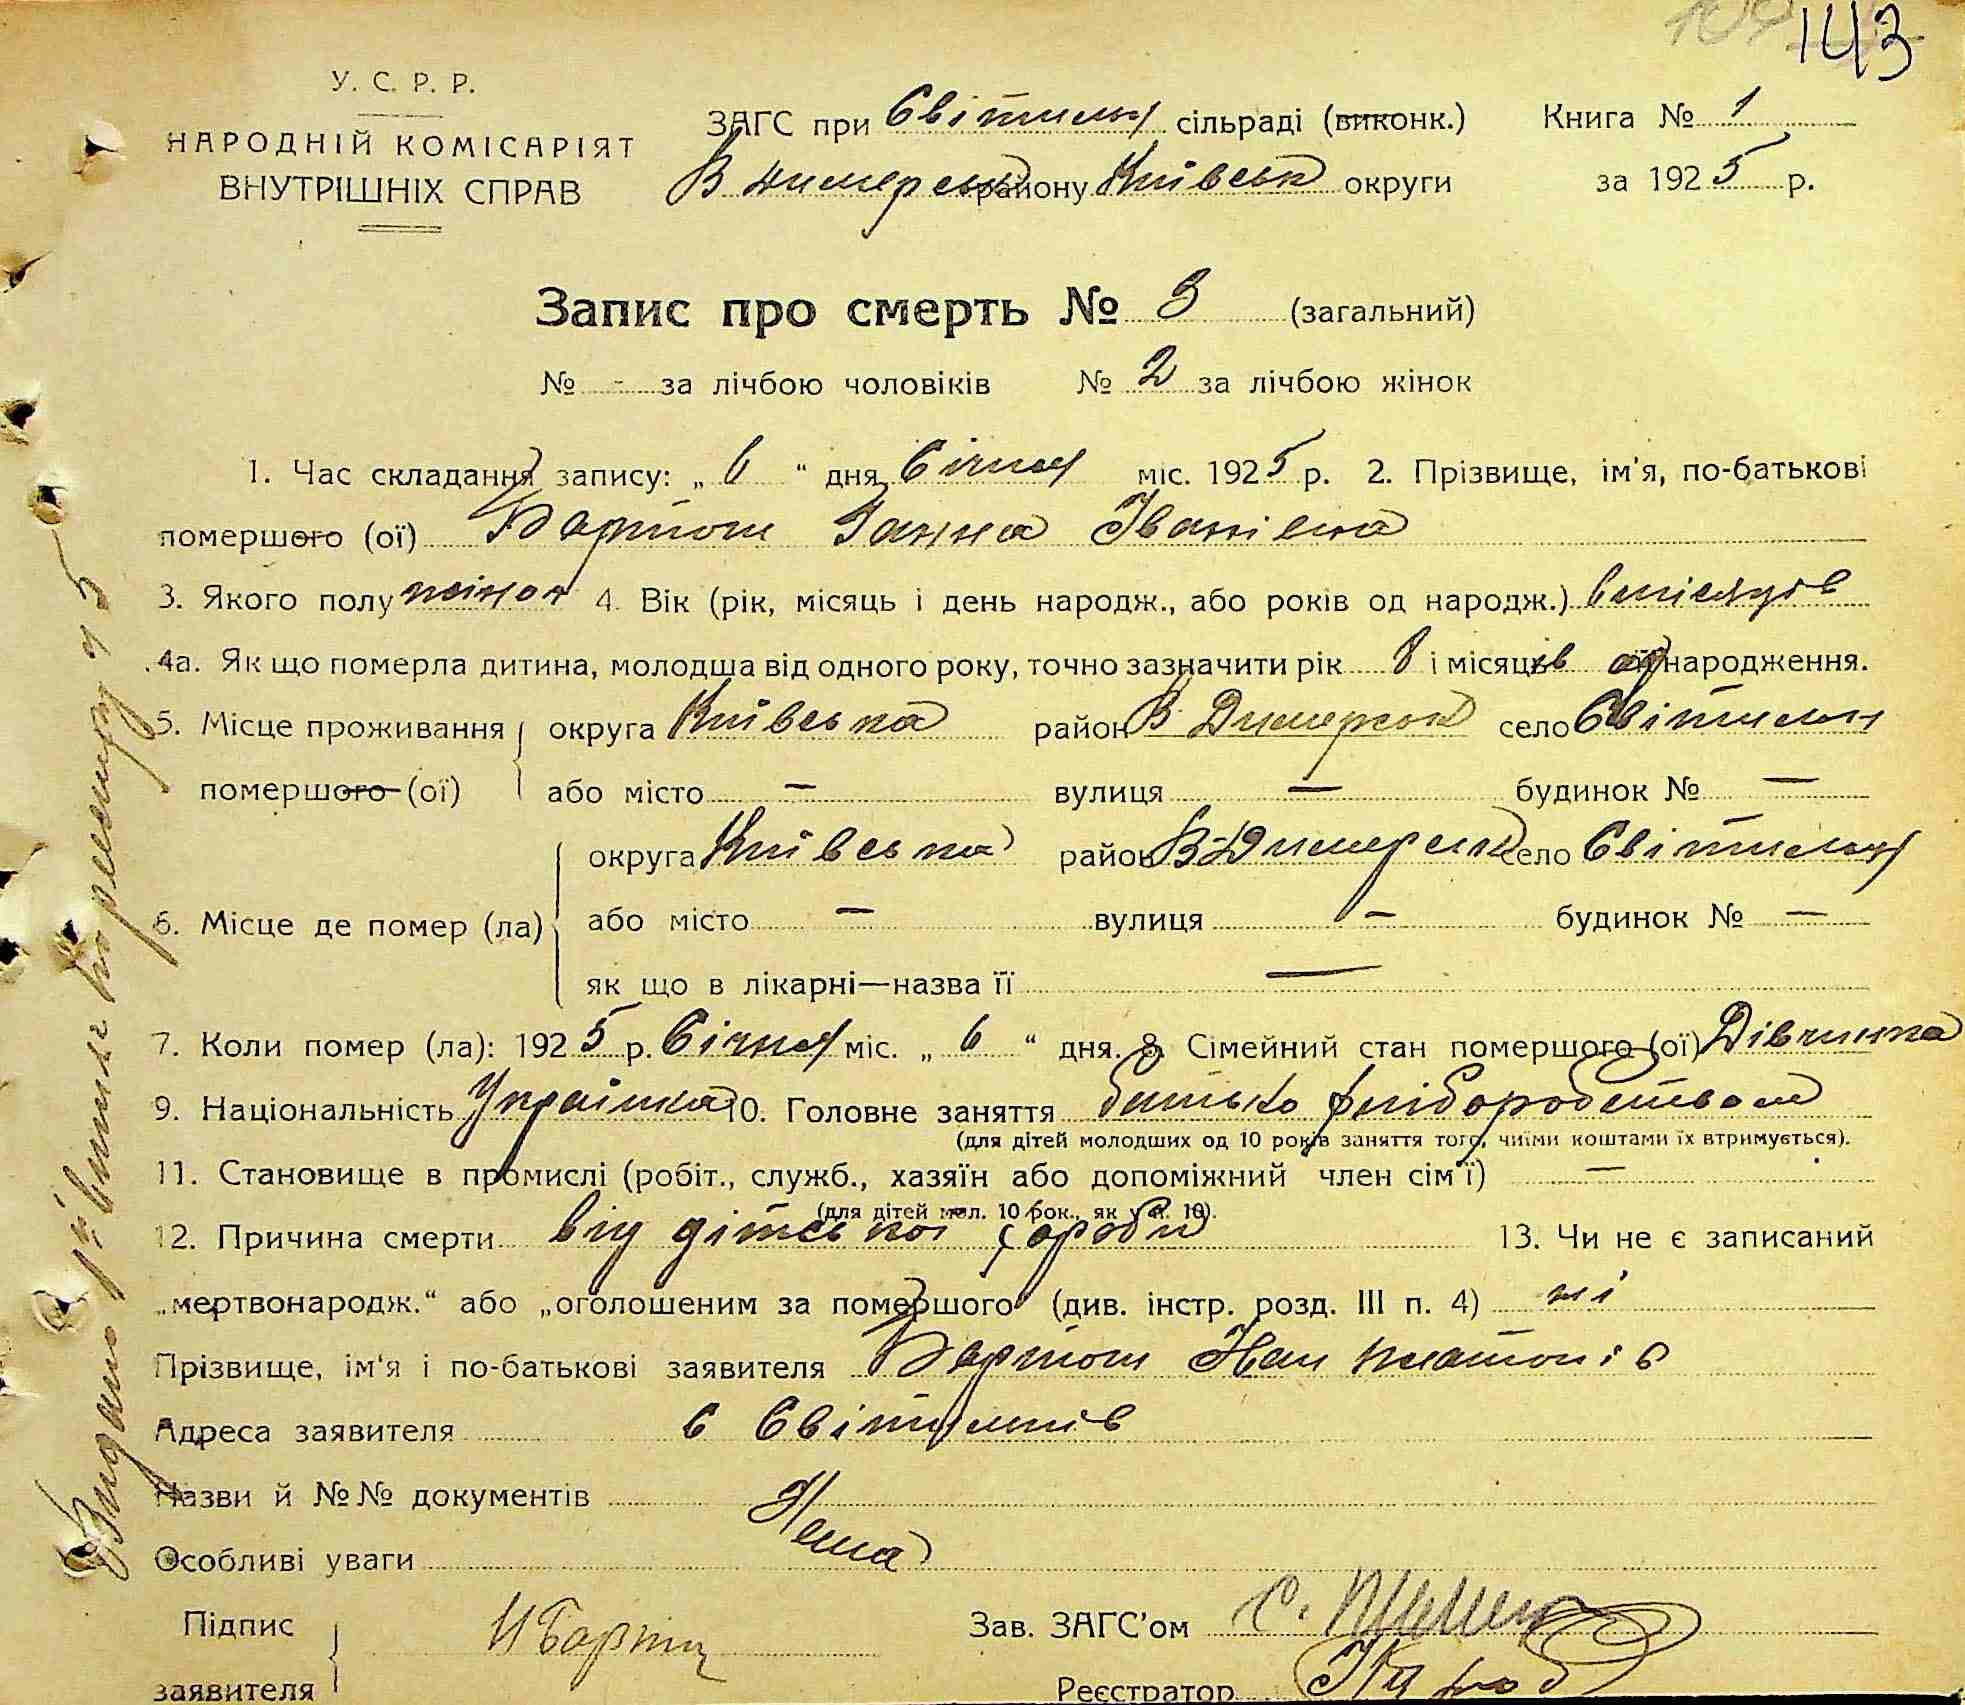 143
У. С. Р. Р.
НАРОДНІЙ КОМІСАРІЯТ
ВНУТРІШНІХ СПРАВ
ЗАГС при Світильн сільраді (виконк.) Книга № 1
В Димерськ району Київськ округи за 1925 р.
Запис про смерть № 3 (загальний)
№ - за лічбою чоловіків № 2 за лічбою жінок
1. Час складання запису: „ 6 “ дня Січня міс. 1925 р. 2. Прізвище, ім'я, по-батькові
помершого (ої) Бартош Ганна Іванівна
3. Якого полу жіноч 4. Вік (рік, місяць і день народж., або років од народж.) 8 місяців
4а. Як що померла дитина, молодша від одного року, точно зазначити рік 8 і місяців од народження.
5. Місце проживання округа Київська район В Димерськ село Світильн
помершого (ої) або місто — вулиця — будинок № —
округа Київська район В-Димерськ село Світильн
6. Місце де помер (ла) або місто — вулиця — будинок № —
як що в лікарні—назва її —
7. Коли помер (ла): 1925 р. Січня міс. „ 6 “ дня. 8. Сімейний стан помершого (ої) Дівчинка
9. Національність Українка 10. Головне заняття батько хліборобством
(для дітей молодших од 10 років заняття того, чиїми коштами їх втримується).
11. Становище в промислі (робіт., служб., хазяїн або допоміжний член сім'ї) —
(для дітей мол. 10 рок., як у п. 10).
12. Причина смерти від дітської хороби 13. Чи не є записаний
„мертвонародж.“ або „оголошеним за помершого“ (див. інстр. розд. III п. 4) ні
Прізвище, ім'я і по-батькові заявителя Бартош Іван Платонів
Адреса заявителя с Світильнів
Назви й №№ документів Нема
Особливі уваги
Підпис
заявителя И Барт
Зав. ЗАГС'ом
Реєстратор